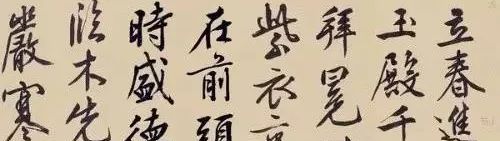 立春進
玉殿千
拜冕
紫衣
在前頭
時盛德
木先
嚴寒